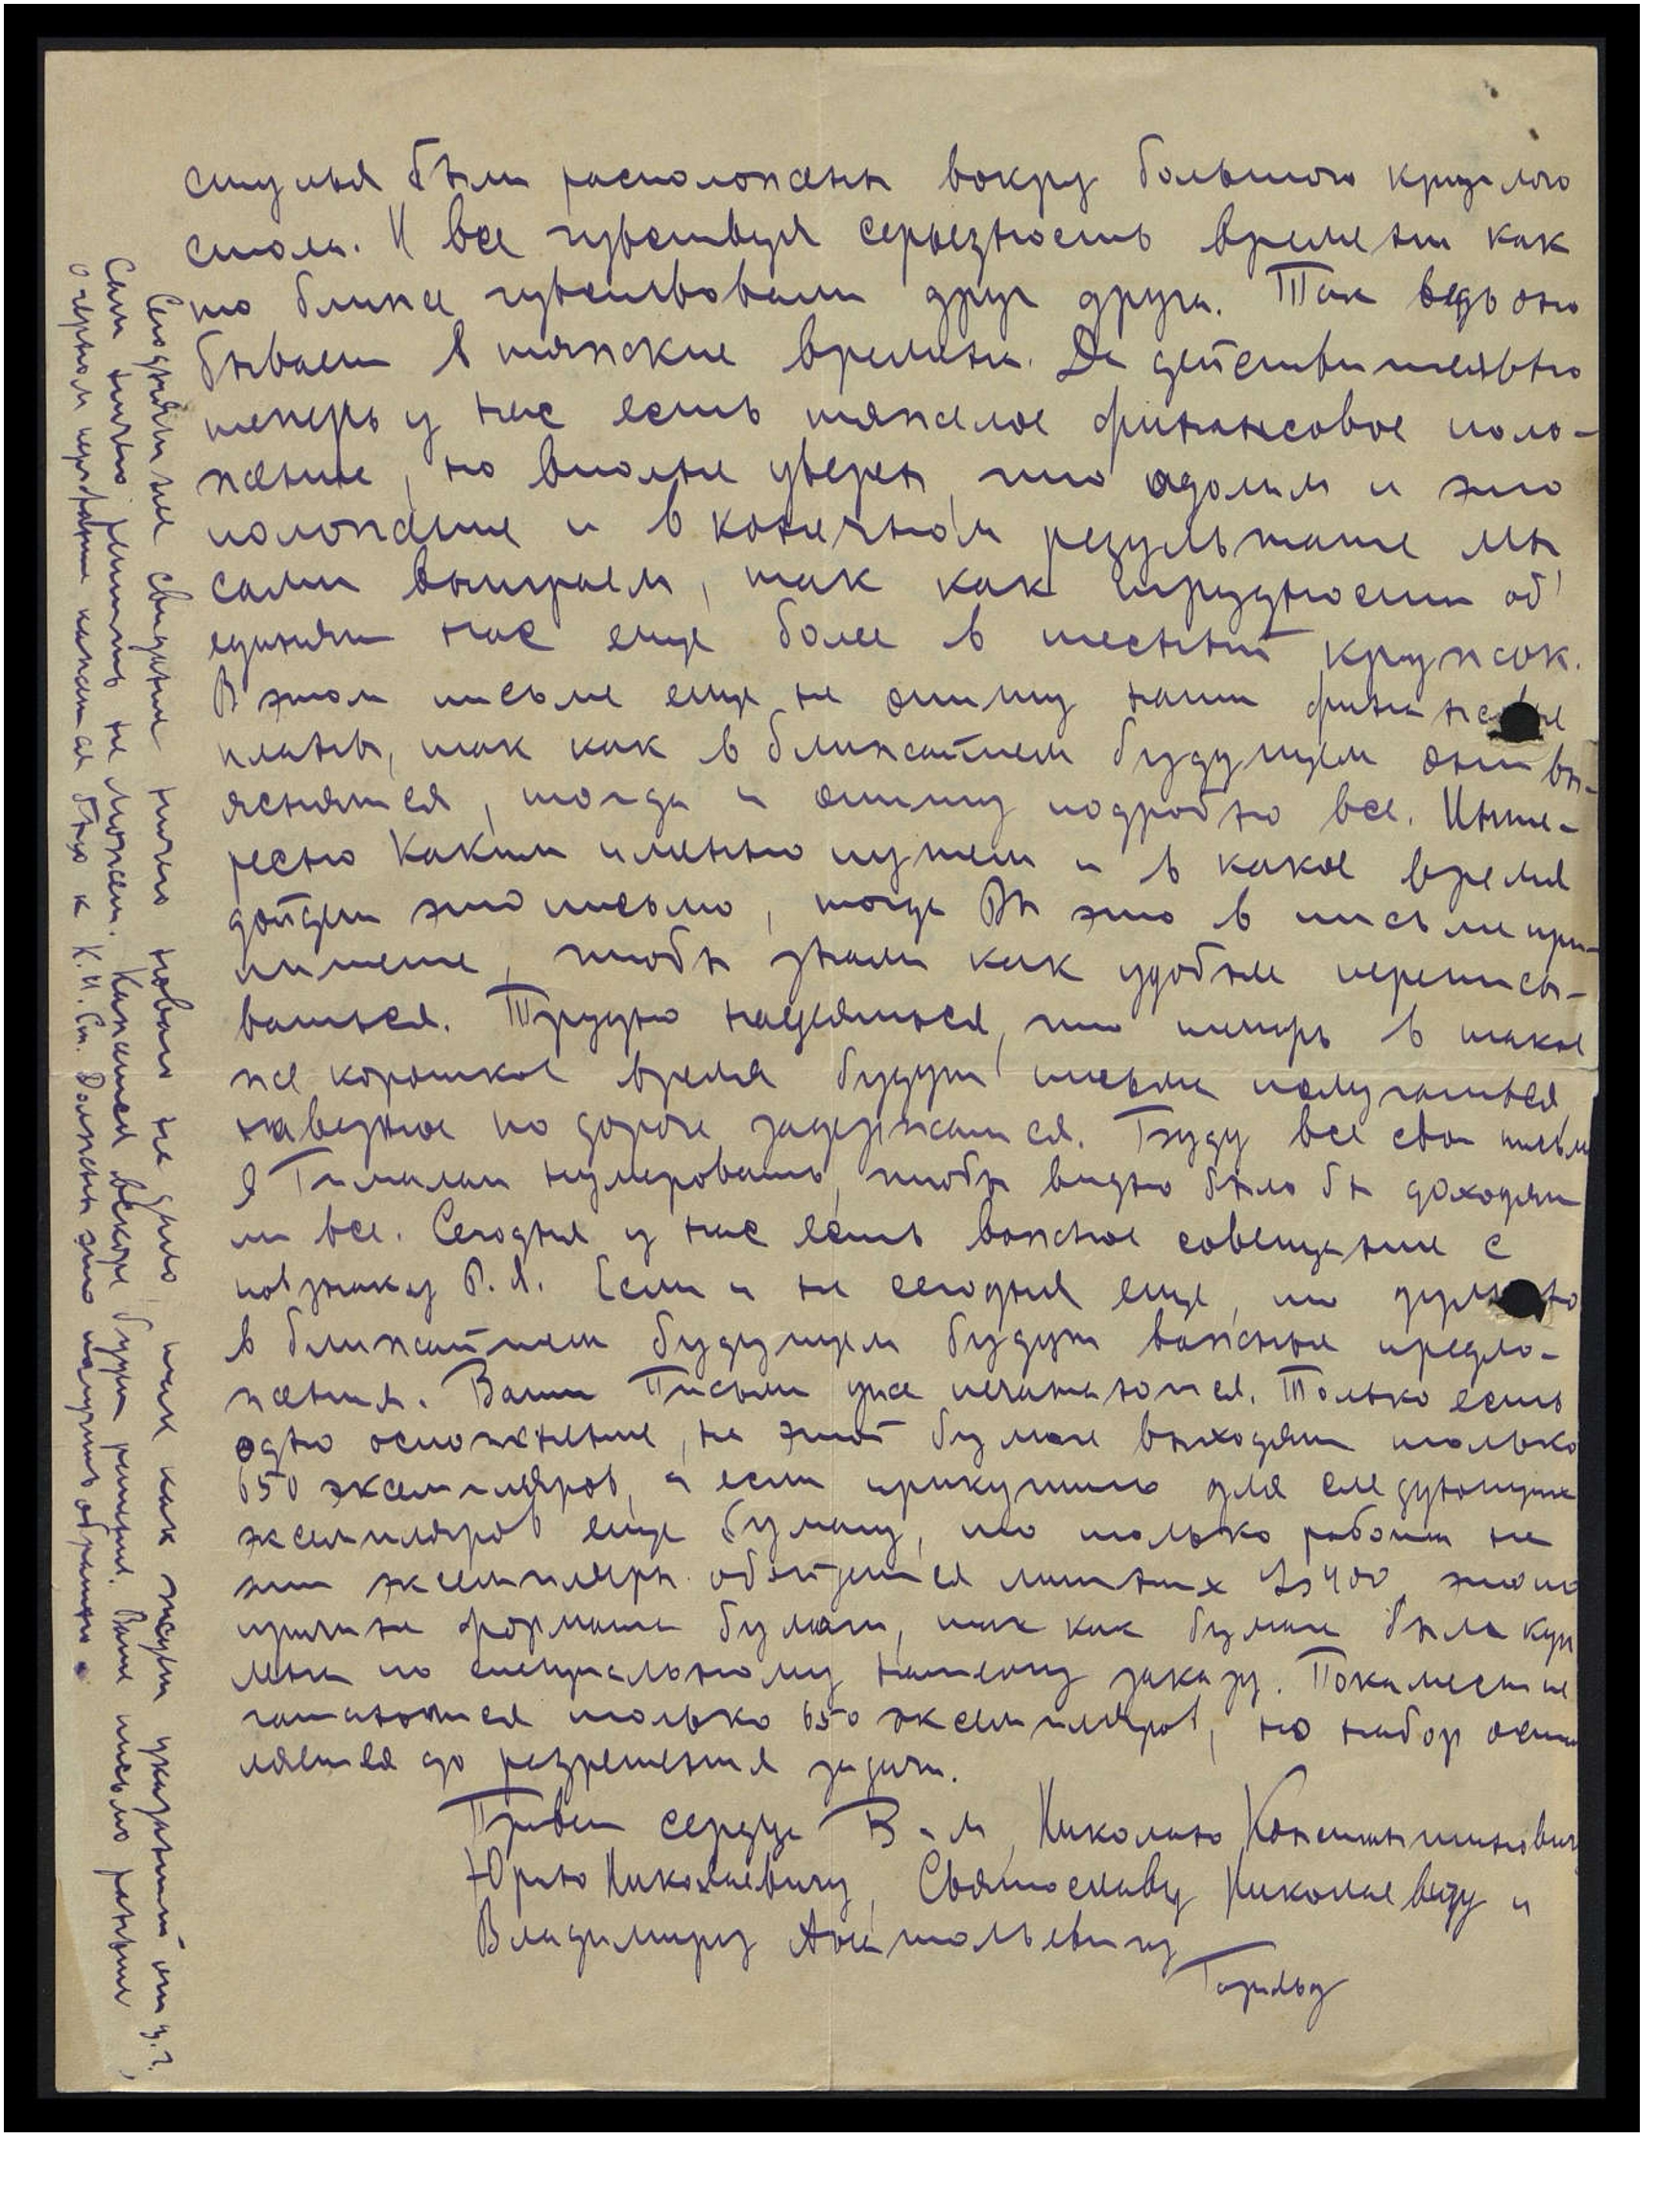 стулья были расположены вокруг большого круглого
стола. И все чувствуя серьезность времени как
то ближе чувствовали друг друга. Так ведь оно
бывает в тяжские времена. Да действительно
теперь у нас есть тяжелое финансовое поло-
жение, но вполне уверен, что одолим и это
положение и в конечном результате мы
сами выиграем, так как трудности об'
единяти нас еще более в тесный кружок.
В этом письме еще не опишу наши
планы, так как в ближайшем будущем они вы-
яснятся, тогда и опишу подробно все. Инте-
ресно каким именно путем и в какое время
дойдет это письмо, тогда Вы это в письме при-
пишете, чтобы знали как удобнее переписы-
ваться. Трудно надеяться, что теперь в такое
же короткое время будут письма получаться,
наверное по дороге задержатся. Буду все свои письма
в Гималаи нумеровать, чтобы видно было бы доходят
ли все. Сегодня у нас есть важное совещание с
по знаку В. Я. Если и не сегодня еще, то
в ближайшем будущем будут важные предло-
жения. Ваши Письма уже печатаются. Только есть
одно осложнение, на этой бумаге выходят только
650 экземпляров, а если прикупить для следующих
экземпляров еще бумагу, то только работа на
эти экземпляры обойдется лишних Ls 400, этому
причина формата бумаги, так как бумага была куп
лена по специальному нашему заказу. Покамест пе
чатаются только 650 экземпляров, но набор остав
ляется до разрешения задачи.
Привет сердца Вам, Николаю Константиновичу
Юрию Николаевичу, Святославу Николаевичу и
Владимиру Анатольевичу
Гаральд
Сегодняшнее свидание ничего нового не дало, так как ждут указаний от з. г.
Сам ничего решить не может. Кажется вскоре будут решения. Ваше письмо раньше,
о черном
к К. И. Ст. Должны это получить обратно.